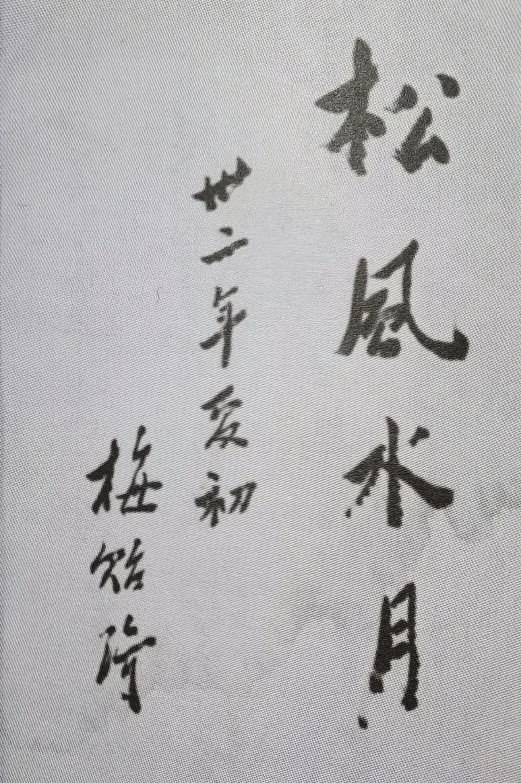 松風水月
卅二年夏初
梅貽琦